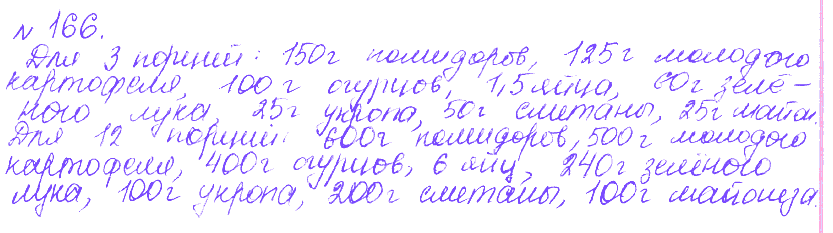 № 166.
Для 3 порций: 150г помидоров, 125г молодого
картофеля, 100г огурцов, 1,5 яйца, 60г зелё-
ного лука, 25г укропа, 50г сметаны, 25г майон.
Для 12 порций: 600г помидоров, 500г молодого
картофеля, 400г огурцов, 6 яиц, 240г зелёного
лука, 100г укропа, 200г сметаны, 100г майонеза.